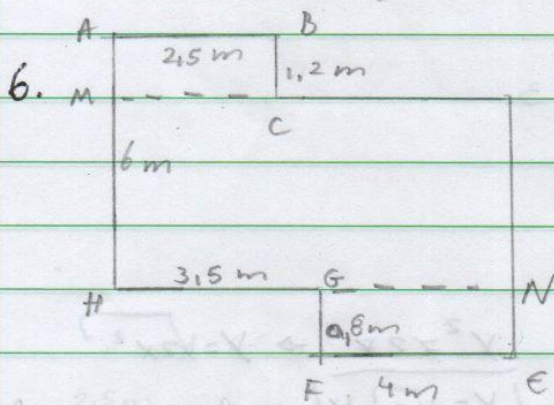 A B
2,5 m
1,2 m
6. M
C
6 m
3,5 m G
H N
0,8m
F 4m E